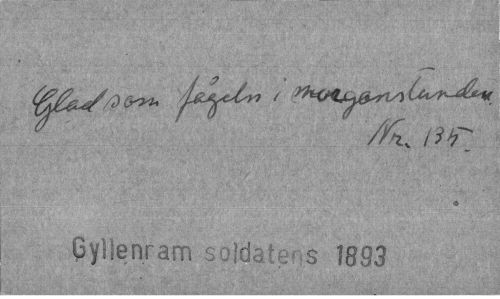 Glad som fågeln i morgonstunden
Nr. 135.
Gyllenram soldatens 1893